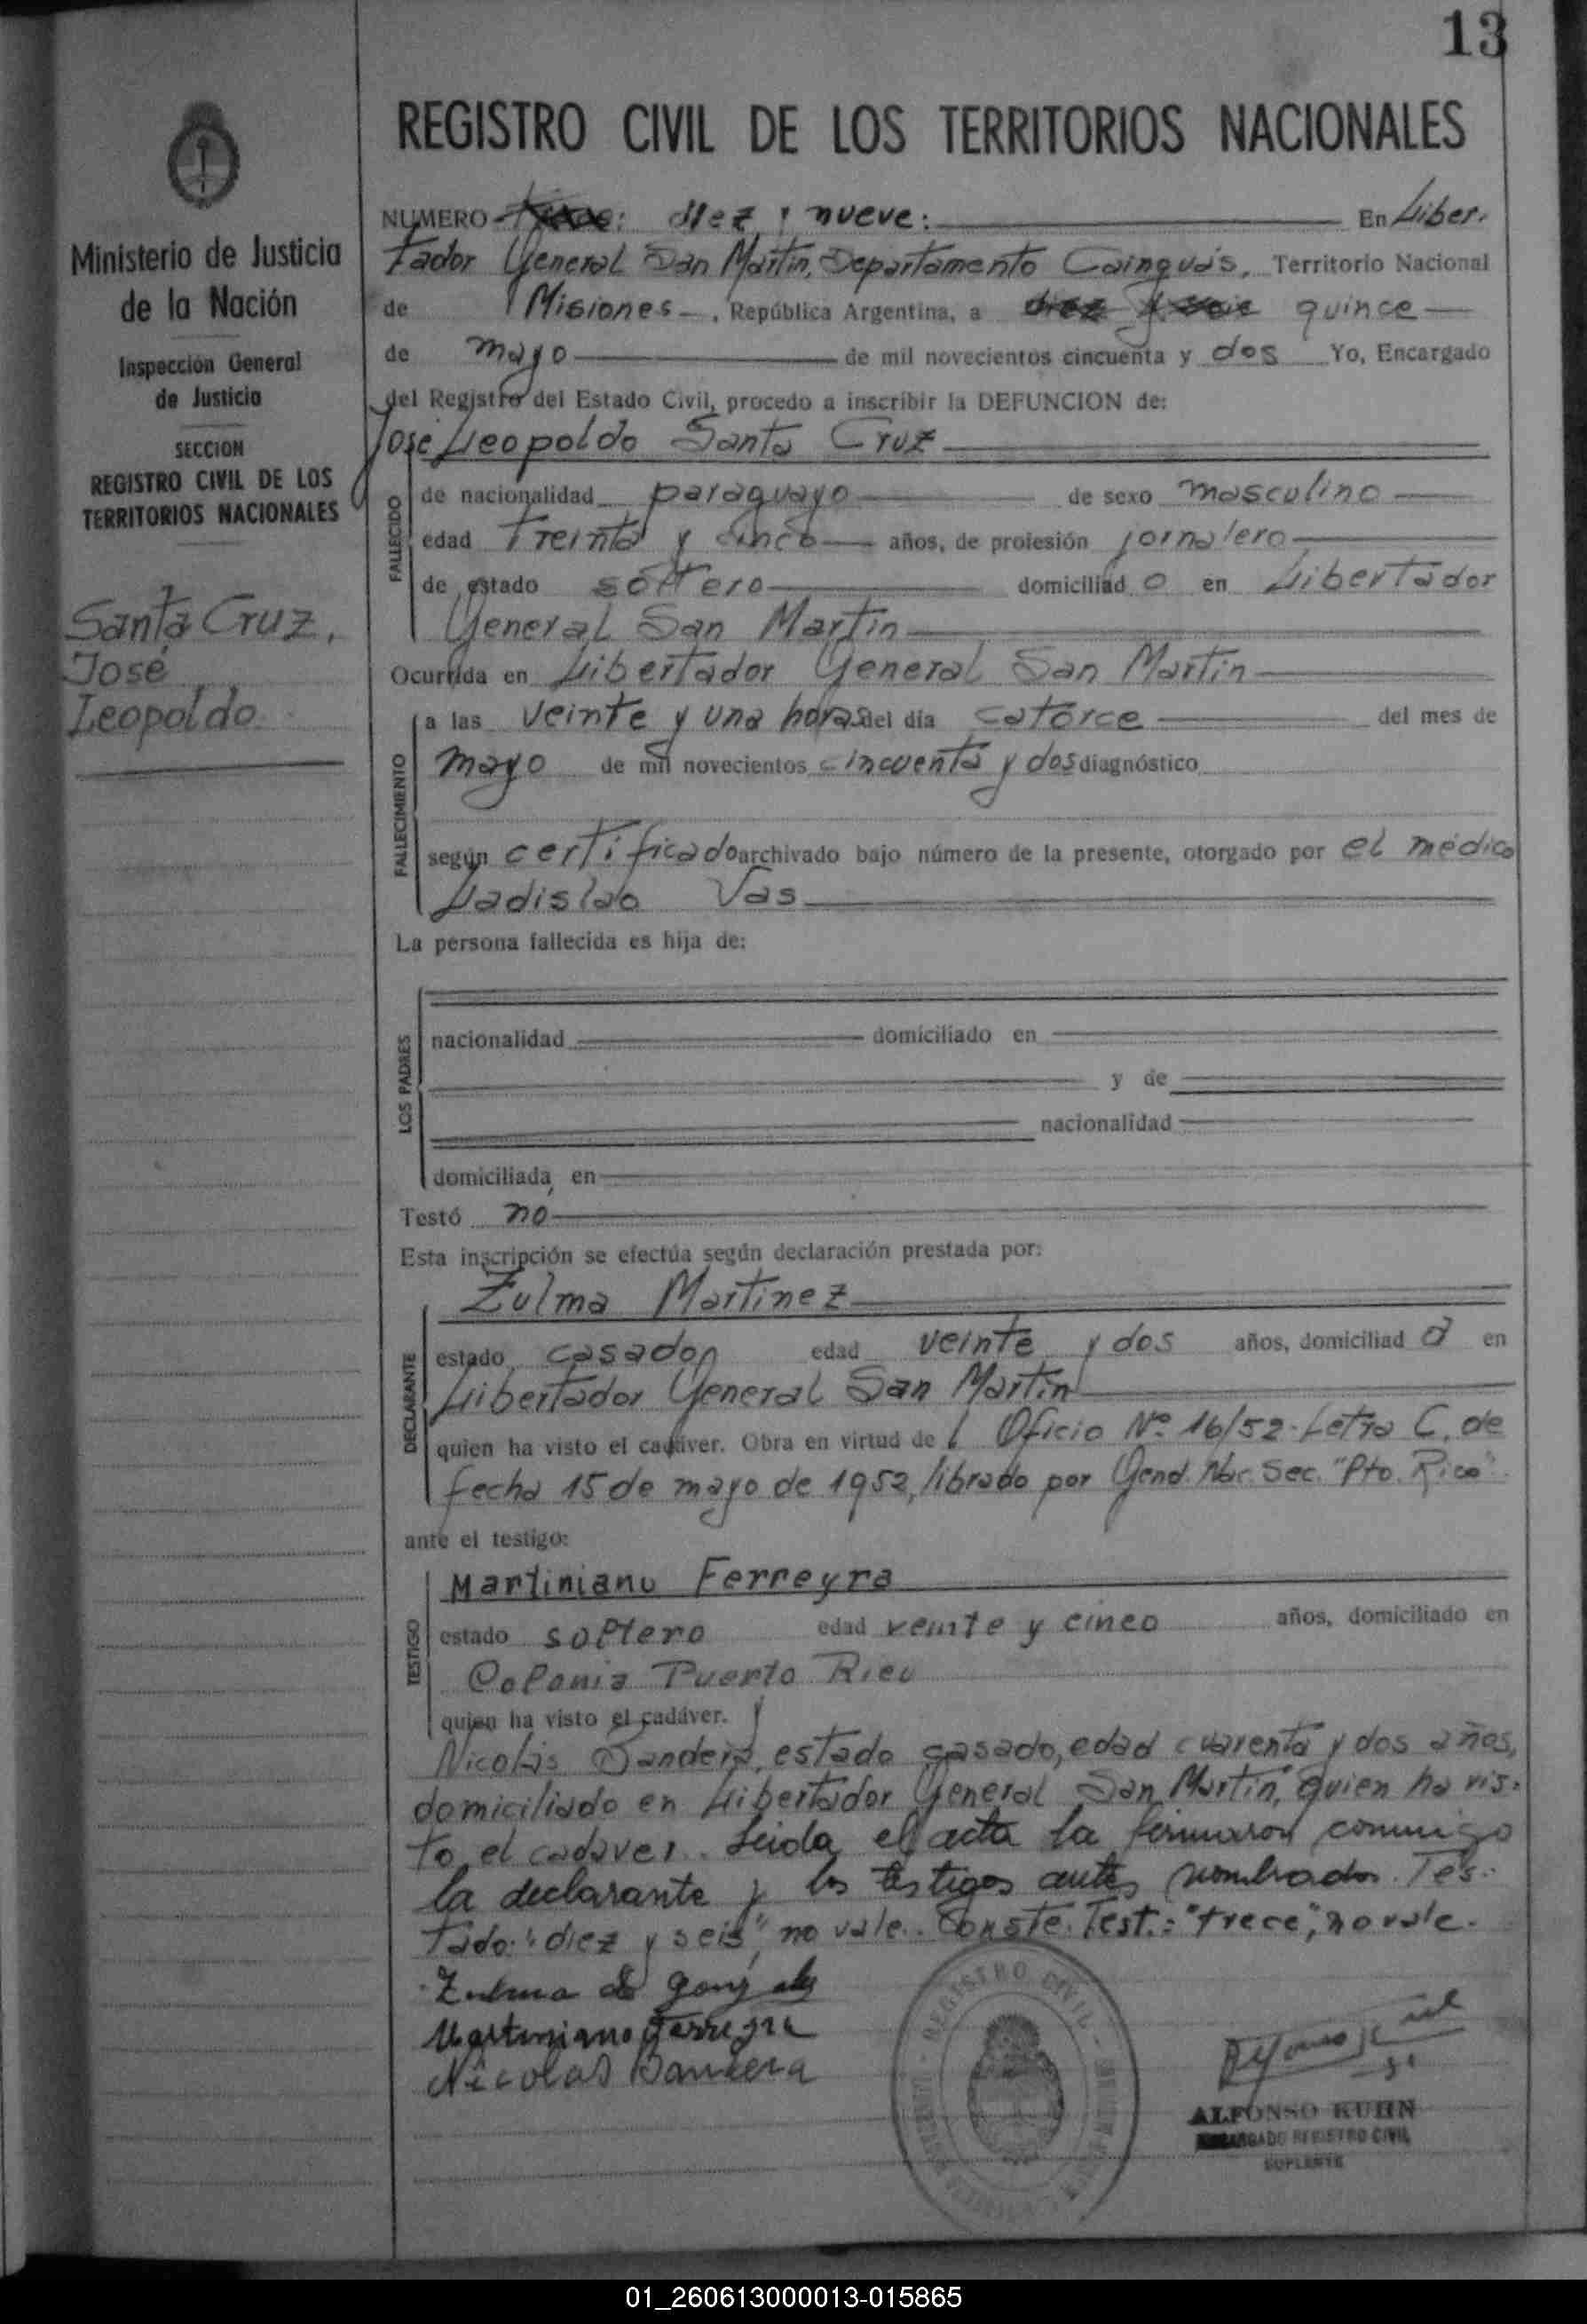 13
REGISTRO CIVIL DE LOS TERRITORIOS NACIONALES
Ministerio de Justicia
de la Nación
Inspección General
de Justicia
SECCION
REGISTRO CIVIL DE LOS
TERRITORIOS NACIONALES
Santa Cruz,
José
Leopoldo
NUMERO trece: diez y nueve: En Liber-
tador General San Martín, Departamento Cainguás, Territorio Nacional
de Misiones, República Argentina, a diez y seis quince
de mayo de mil novecientos cincuenta y dos Yo, Encargado
del Registro del Estado Civil, procedo a inscribir la DEFUNCION de:
José Leopoldo Santa Cruz
FALLECIDO
de nacionalidad paraguayo de sexo masculino
edad treinta y cinco años, de profesión jornalero
de estado soltero domiciliad o en Libertador
General San Martín
Ocurrida en Libertador General San Martín
FALLECIMIENTO
a las veinte y una horas del día catorce del mes de
mayo de mil novecientos cincuenta y dos diagnóstico
según certificado archivado bajo número de la presente, otorgado por el médico
Ladislao Vas
La persona fallecida es hija de:
LOS PADRES
nacionalidad domiciliado en
y de
nacionalidad
domiciliada en
Testó no
Esta inscripción se efectúa según declaración prestada por:
Zulma Martínez
DECLARANTE
estado casada edad veinte y dos años, domiciliad a en
Libertador General San Martín
quien ha visto el cadáver. Obra en virtud de l Oficio Nº 16/52-Letra C. de
fecha 15 de mayo de 1952, librado por Gend. Nac. Sec. "Pto. Rico"
ante el testigo:
Martiniano Ferreyra
TESTIGO
estado soltero edad veinte y cinco años, domiciliado en
Colonia Puerto Rico
quien ha visto el cadáver. y
Nicolás Bandera, estado casado, edad cuarenta y dos años,
domiciliado en Libertador General San Martín, quien ha vis-
to el cadáver. Leida el acta la firmaron conmigo
la declarante y los testigos antes nombrados. Tes-
tado: "diez y seis", no vale. Conste. Test.: "trece", no vale.
Zulma de González
Martiniano Ferreyra
Nicolas Bandera
REGISTRO CIVIL
ALFONSO KUHN
ENCARGADO REGISTRO CIVIL
SUPLENTE
01_260613000013-015865